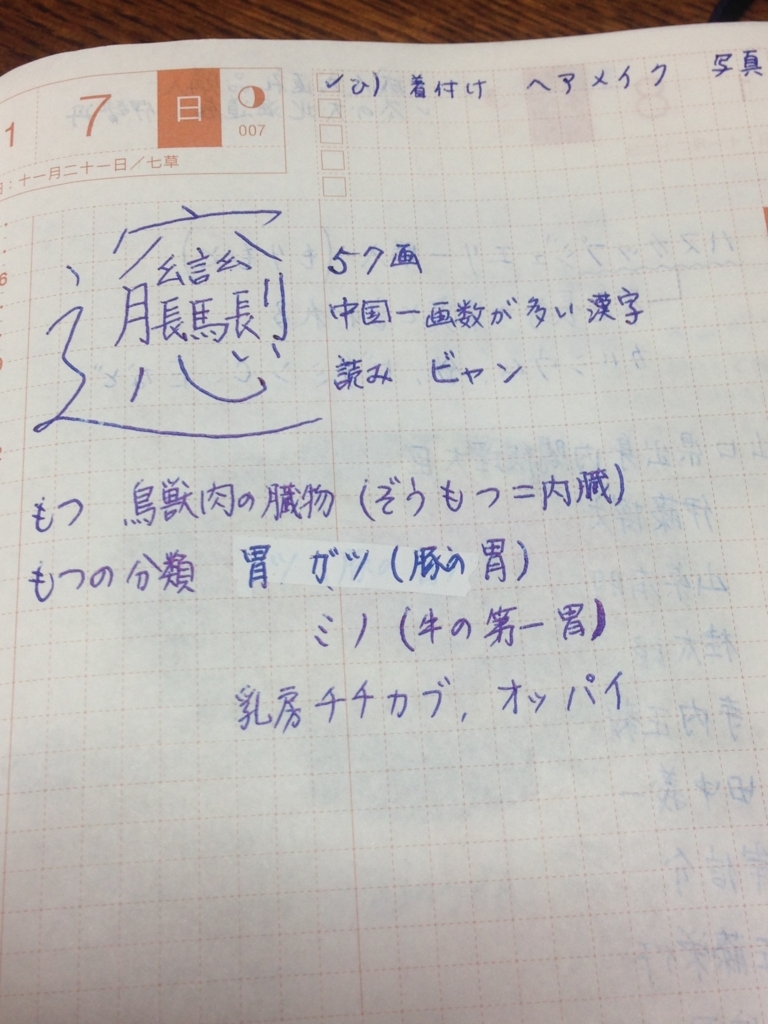 1 7 日
007
：十一月二十一日／七草
✓ひ) 着付け ヘアメイク 写真
𰻞 57画
中国一画数が多い漢字
読み ビャン
もつ 鳥獣肉の臓物 (ぞうもつ＝内臓)
もつの分類 胃 ガツ (豚の胃)
ミノ (牛の第一胃)
乳房 チチカブ, オッパイ